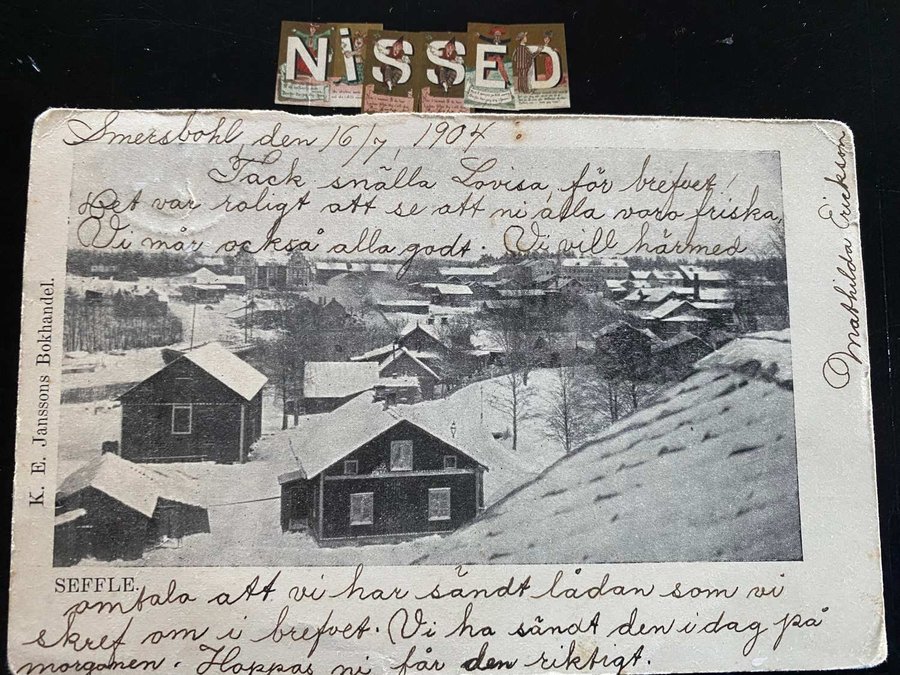 NiSSED
Smersbohl, den 16/7, 1904
Tack snälla Lovisa för brefvet!
Det var roligt att se att ni alla voro friska,
Vi mår också alla godt. Vi vill härmed
Mathilda Erickson
K. E. Janssons Bokhandel.
SEFFLE.
omtala att vi har sändt lådan som vi
skref om i brefvet. Vi ha sändt den i dag på
morgonen. Hoppas ni får den riktigt.